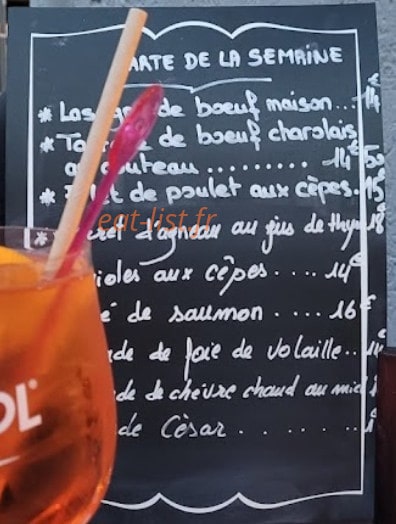 ARTE DE LA SEMAINE
* Las de boeuf maison... 14€
* Ta de boeuf charolais
au couteau ......... 14€50
* let de poulet aux cèpes. 15€
* d'agneau au jus de thym 18€
ioles aux cèpes .... 14€
é de saumon .... 16€
de de foie de volaille..
de de chèvre chaud au miel
de Cèsar .......
eat-list.fr
OL